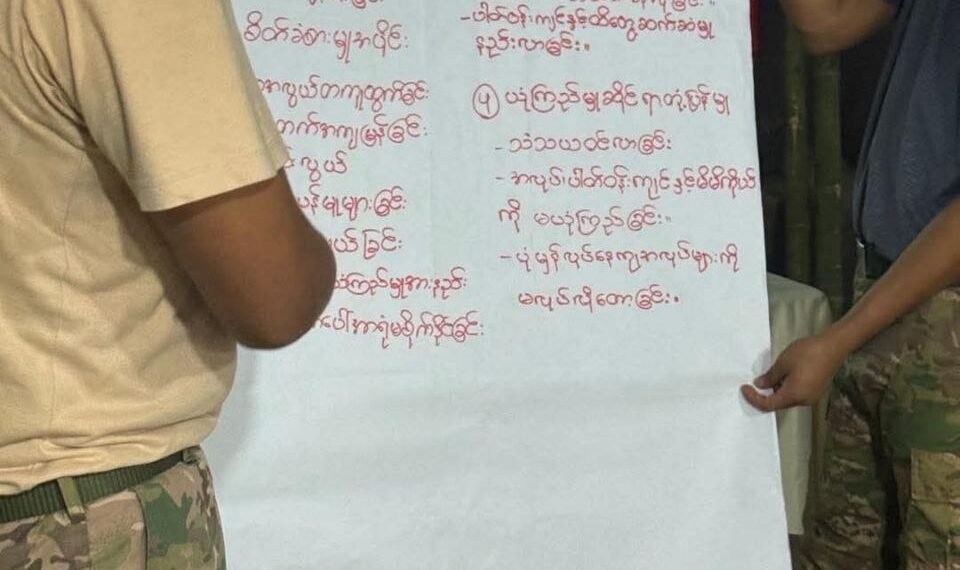 စိတ်ခံစားမှုအပိုင်း
လွယ်တကူထွက်ခြင်း
တက်အကျမြန်ခြင်း
လွယ်
ပန်မှုများခြင်း
ယ်ခြင်း
ယုံကြည်မှုအားနည်း
ပေါ်အာရုံမစိုက်နိုင်ခြင်း
- ပါတ်ဝန်းကျင်နှင့်ထိတွေ့ဆက်ဆံမှု
နည်းလာခြင်း။
၅ ယုံကြည်မှုဆိုင်ရာတုံ့ပြန်မှု
- သံသယဝင်လာခြင်း
- အလုပ်၊ ပါတ်ဝန်းကျင်နှင့်မိမိကိုယ်
ကို မယုံကြည်ခြင်း။
- ပုံမှန်လုပ်နေကျအလုပ်များကို
မလုပ်လိုတော့ခြင်း။